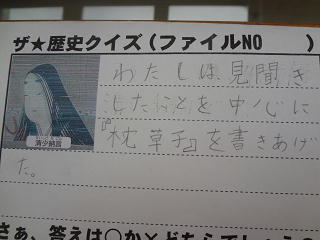 ザ★歴史クイズ(ファイルNO　　)
わたしは、見聞き
したことを中心に
『枕草子』を書きあげ
た。
清少納言
さあ、答えは○か×どちらでしょう